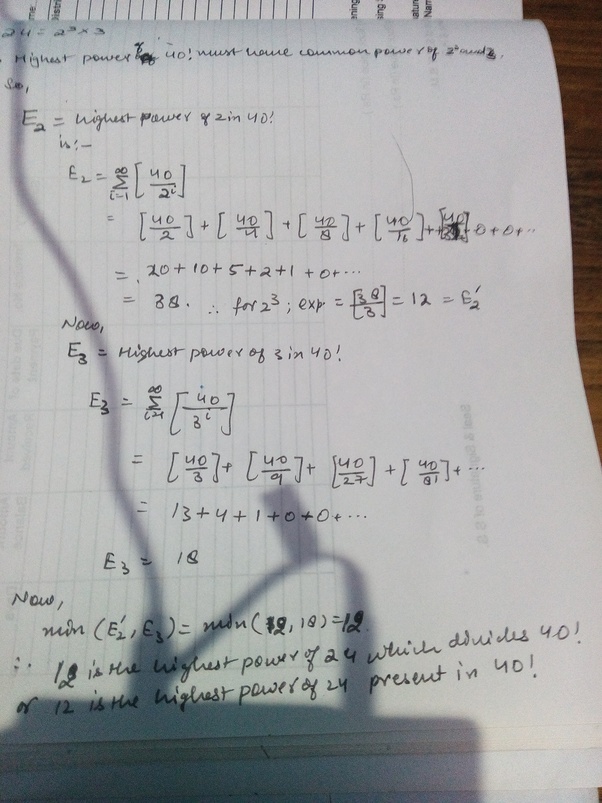 24 = 2³ × 3
Highest power of 40! must have common power of 2³ and 3.
So,
E₂ = Highest power of 2 in 40!
is :-
E₂ = ∞∑i=1 [40/2ⁱ]
= [40/2] + [40/4] + [40/8] + [40/16] + [40/32] + 0 + 0 + ...
= 20 + 10 + 5 + 2 + 1 + 0 + ...
= 38. ∴ for 2³ ; exp = [38/3] = 12 = E₂'
Now,
E₃ = Highest power of 3 in 40!
E₃ = ∞∑i=1 [40/3ⁱ]
= [40/3] + [40/9] + [40/27] + [40/81] + ...
= 13 + 4 + 1 + 0 + 0 + ...
E₃ = 18
Now,
min (E₂', E₃) = min (12, 18) = 12
∴ 12 is the highest power of 24 which divides 40!
or 12 is the highest power of 24 present in 40!